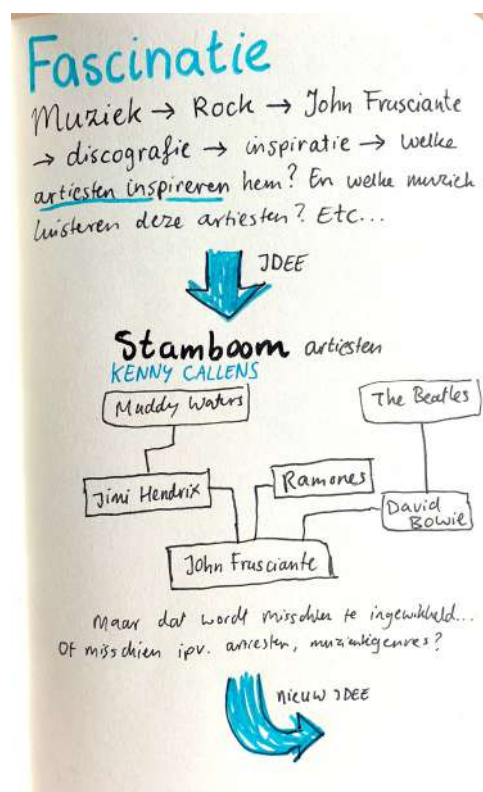 Fascinatie
Muziek → Rock → John Frusciante
→ discografie → inspiratie → welke
artiesten inspireren hem? En welke muziek
luisteren deze artiesten? Etc...
IDEE
Stamboom artiesten
KENNY CALLENS
Muddy Waters
The Beatles
Jimi Hendrix
Ramones
David
Bowie
John Frusciante
Maar dat wordt misschien te ingewikkeld...
Of misschien ipv. artiesten, muziekgenres?
nieuw IDEE